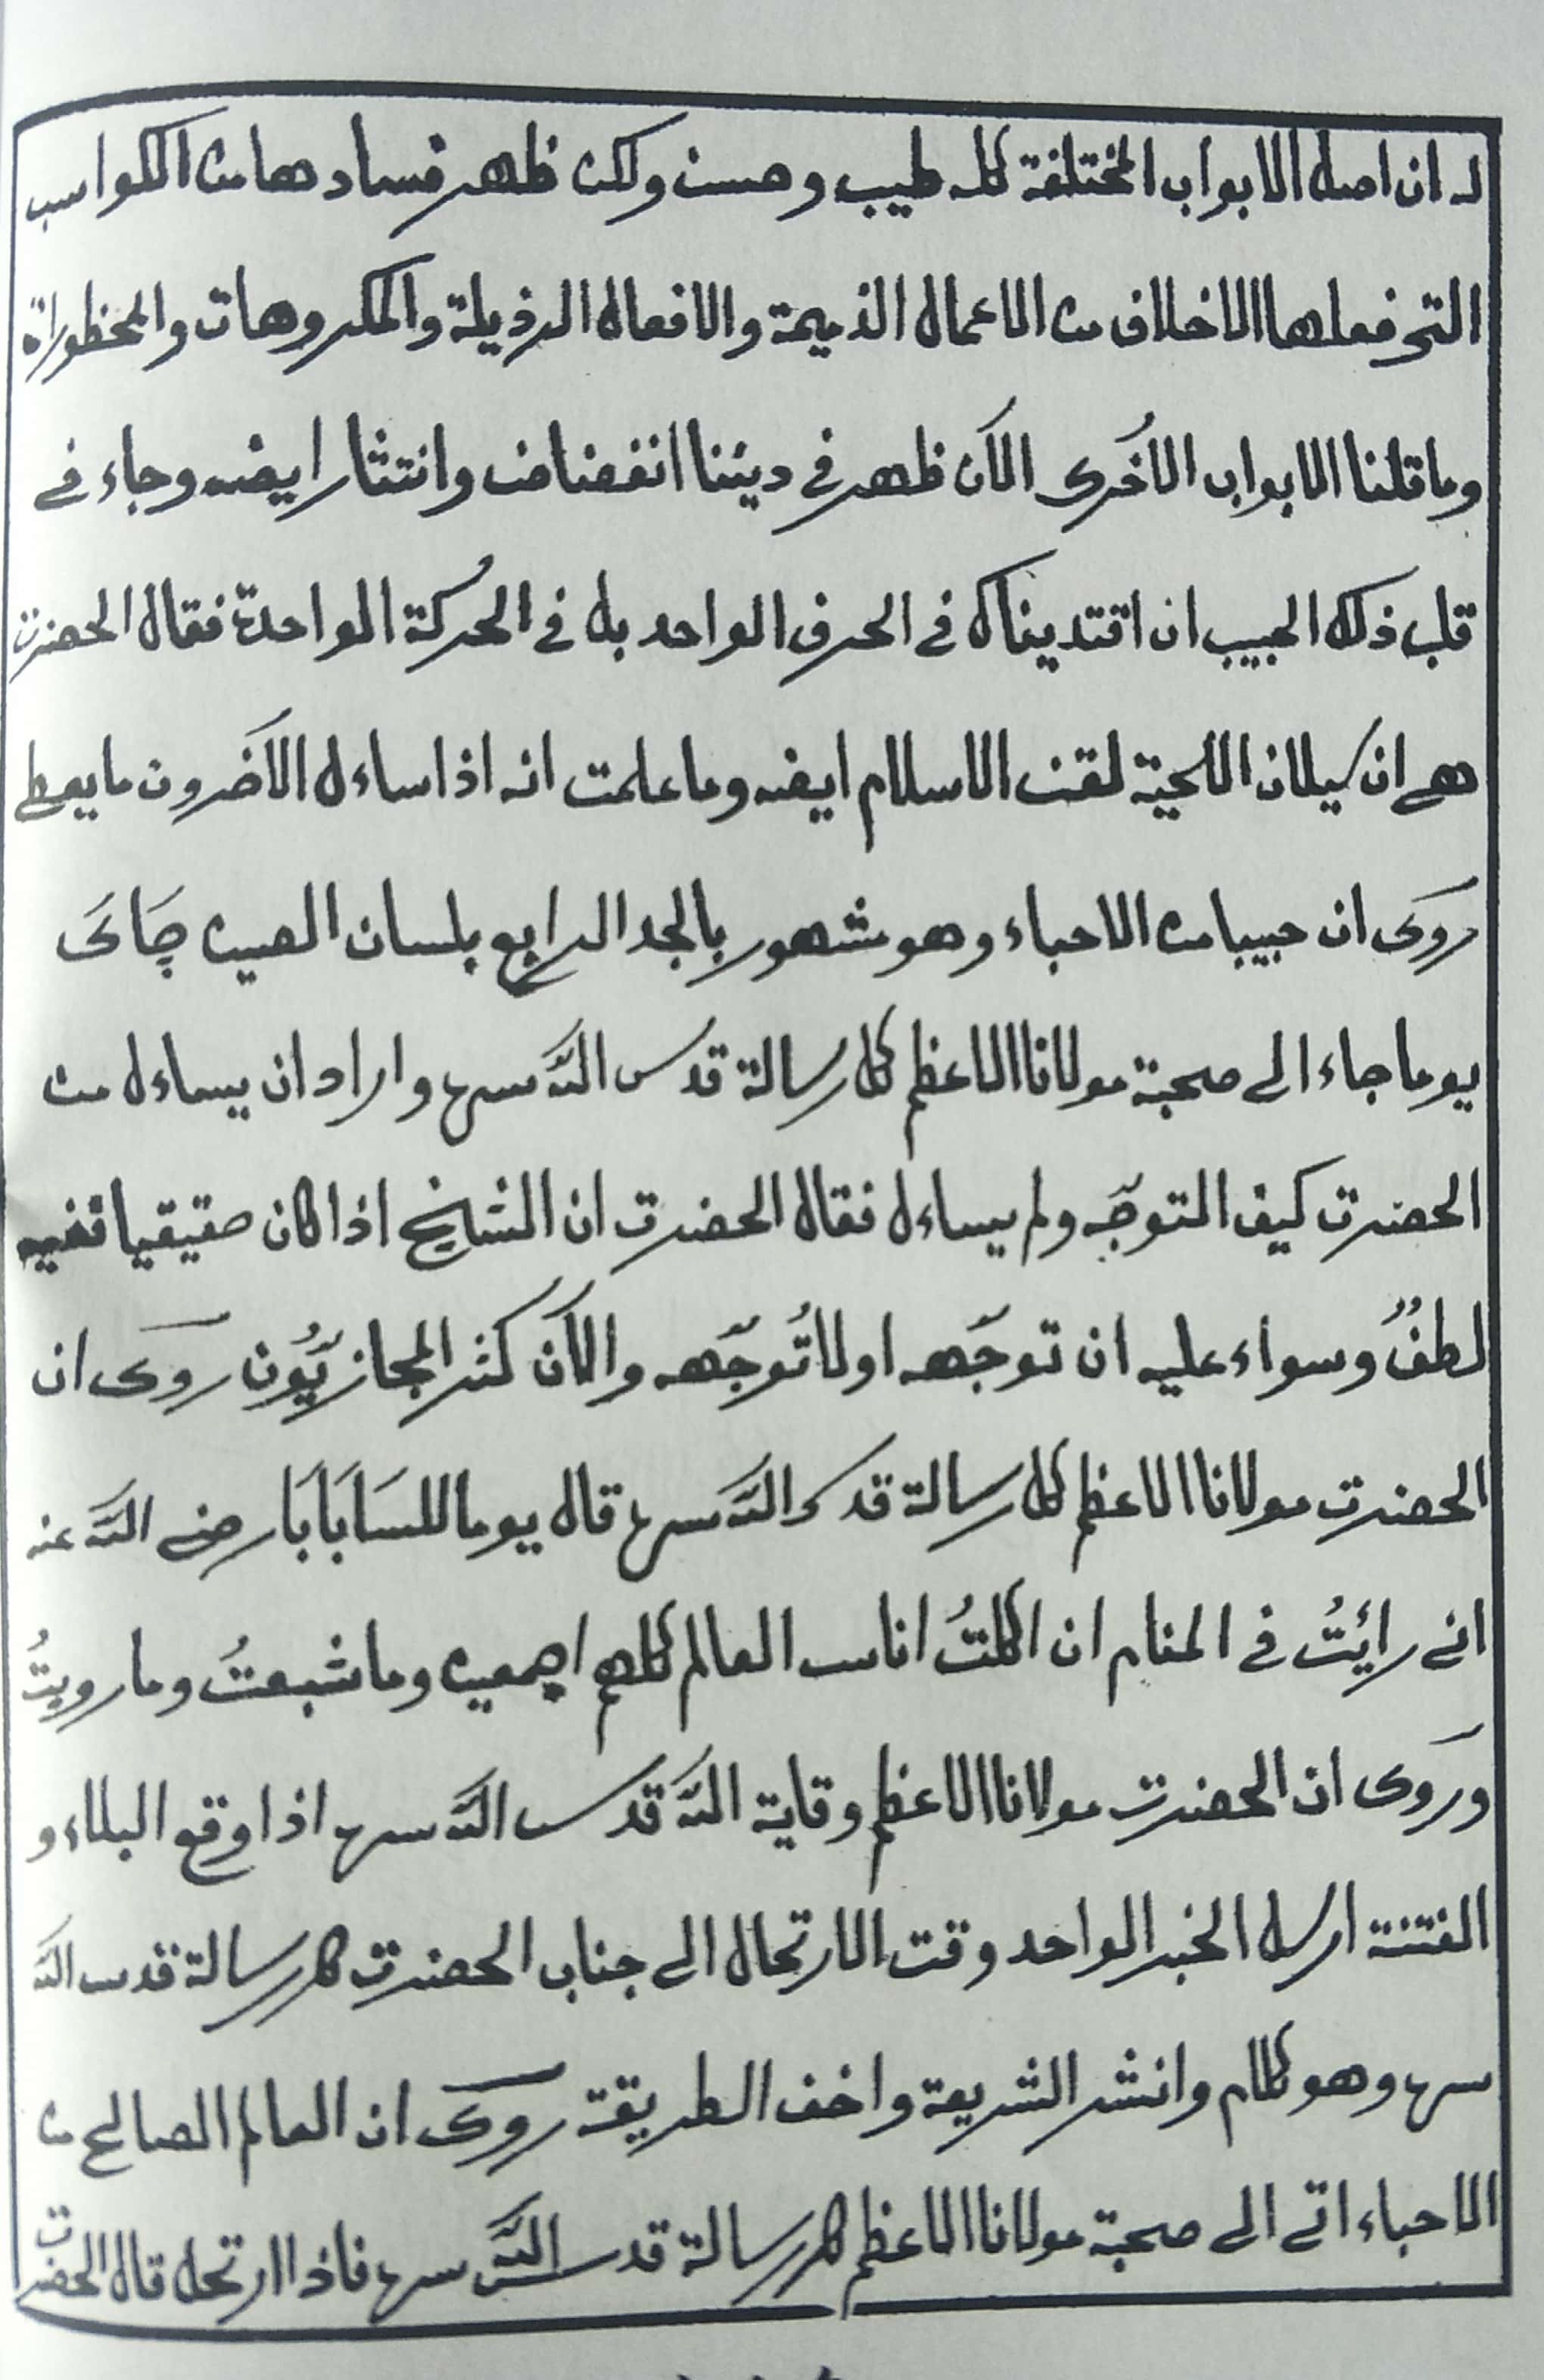 له ان اصل الابواب المختلفة كله طيب وحسن ولكن ظهر فسادها من الكواسب
التى فعلها الاخلاف من الاعمال الذميمة والافعال الرذيلة والمكروهات والمحظوراة
وما قلنا الابواب الأخرى الآن ظهر فى ديننا انفضاض وانتثار ايضه وجاء فے
قلب ذلك الحبيب ان اقتديناك فى الحرف الواحد بل فى الحركة الواحدة فقال الحضرت
هے ان كيلان اللحية لقن الاسلام ايضه وما علمت انه اذا ساءل الآخرون ما يعطے
روَى ان حبيبا من الاحباء وهو مشهور بالجد الرابع بلسان الصين چَائَ
يوما جاء الى صحبة مولانا الاعظم كل رسالة قدس اللّه سره واراد ان يساءل من
الحضرت كيف التوجّه ولم يساءل فقال الحضرت ان الشيخ اذا كان حقيقيا ففيه
لطفٌ وسواء عليه ان توجّهه او لا تُوجّهه والآن كثر المجازيّون روى ان
الحضرت مولانا الاعظم كل رسالة قدس اللّه سره قال يوما للسَابَابَا رضے اللّه عنه
انے رائيتُ فى المنام ان اكلتُ اناس العالم كلهم اجمعين وما شبعتُ وما رويتُ
وروَى ان الحضرت مولانا الاعظم وقاية اللّه قدس اللّه سره اذا وقع البلاء و
الفتنة ارسل الخبر الواحد وقت الارتحال الى جناب الحضرت كل رسالة قدس اللّه
سره وهو كلام وانشر الشريعة واخف الطريقة روى ان العالم الصالح من
الاحباء اتے الى صحبة مولانا الاعظم كل رسالة قدس اللّه سره فاذا ارتحل قال الحضرت